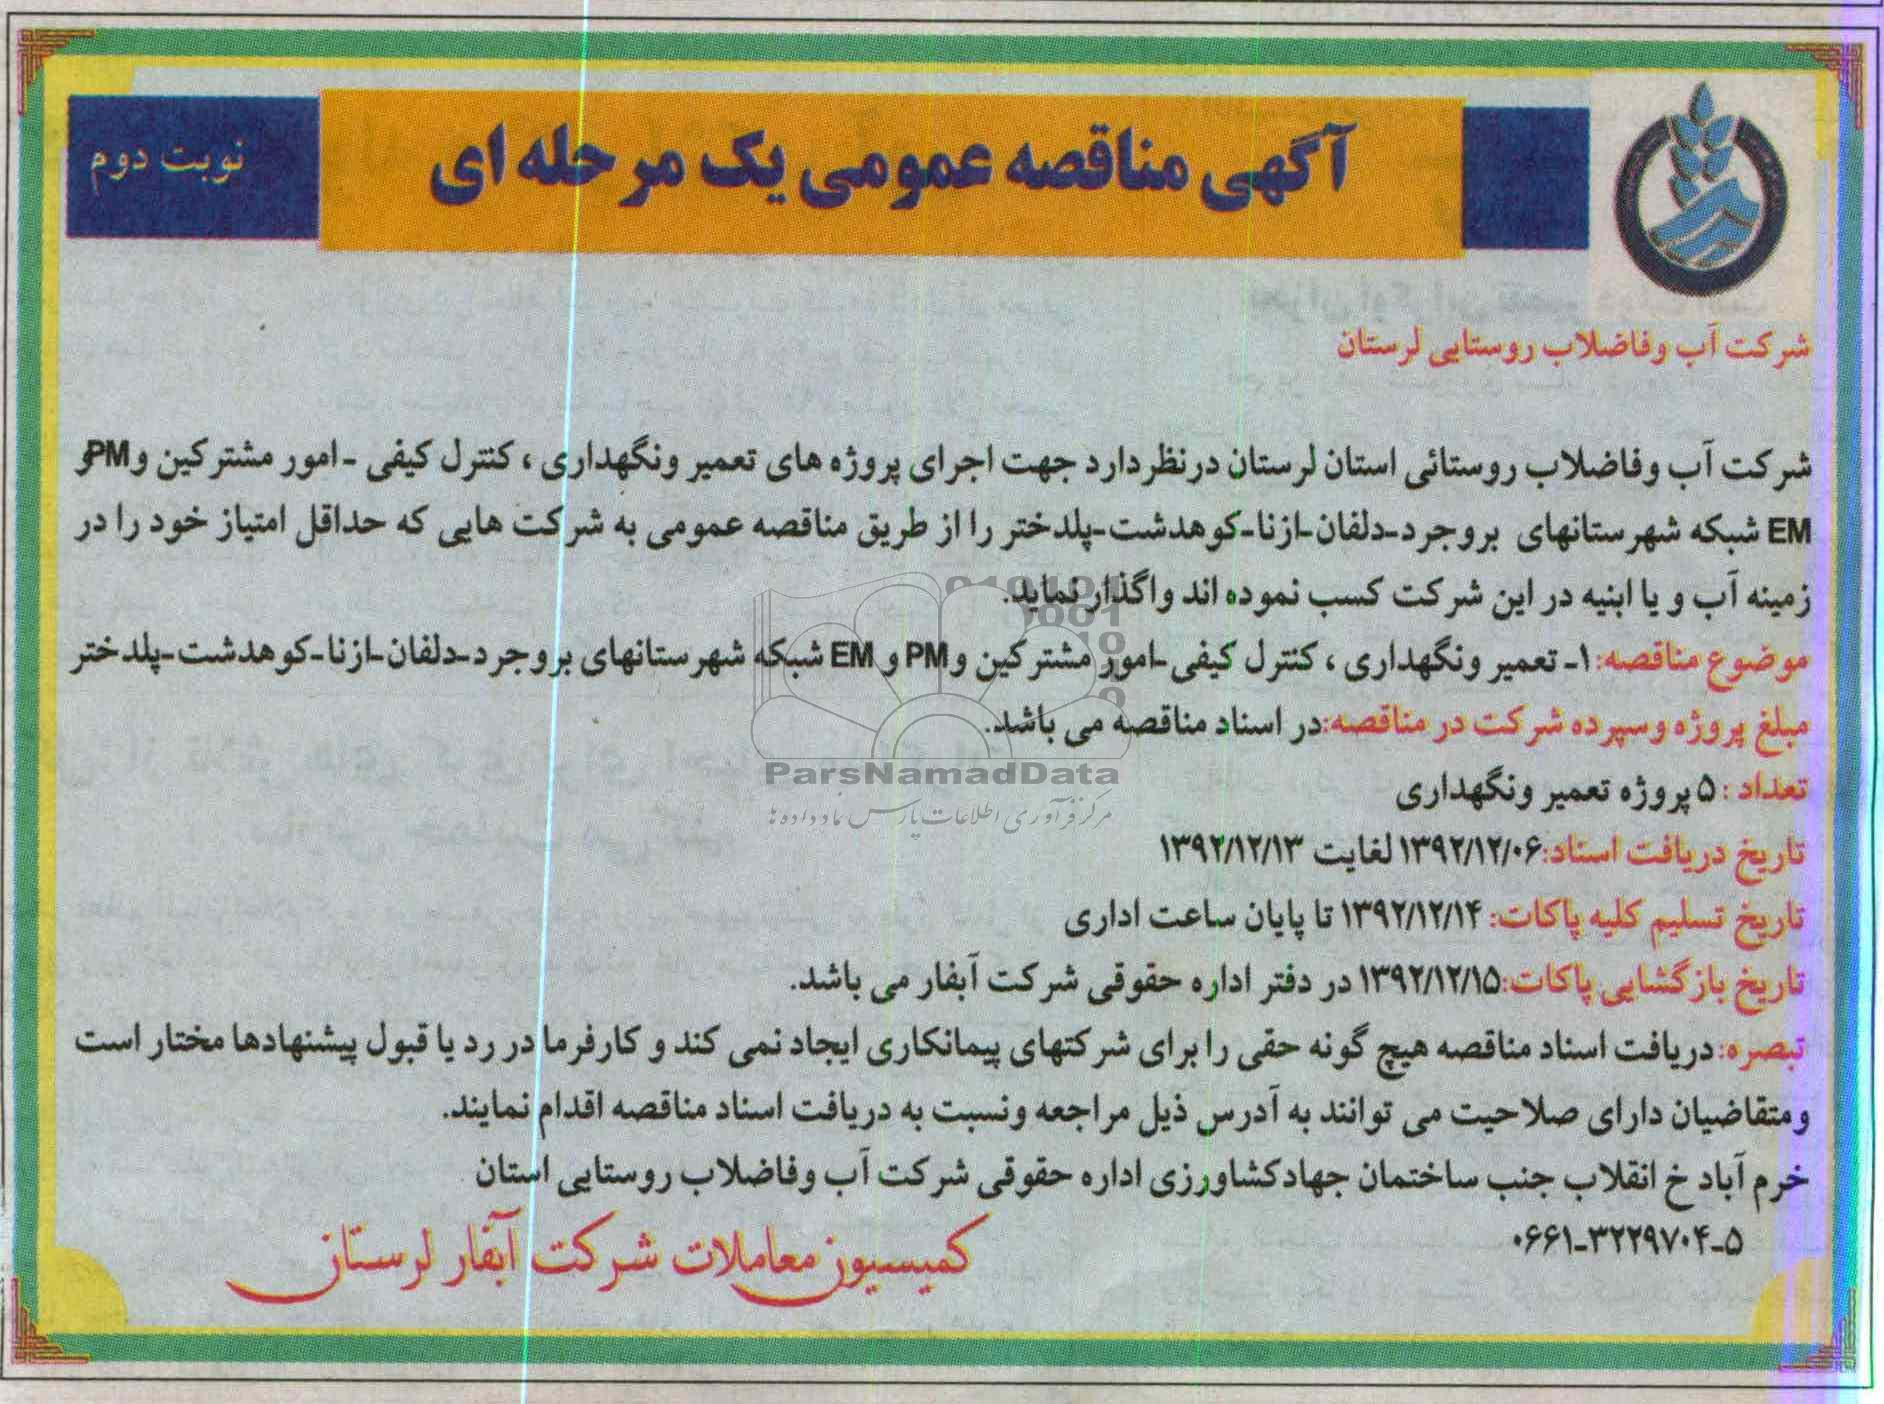 آگهی مناقصه عمومی یک مرحله ای
نوبت دوم
شرکت آب وفاضلاب روستایی لرستان
شرکت آب وفاضلاب روستائی استان لرستان درنظردارد جهت اجرای پروژه های تعمیر ونگهداری ، کنترل کیفی - امور مشترکین وPM و
EM شبکه شهرستانهای بروجرد-دلفان-ازنا-کوهدشت-پلدختر را از طریق مناقصه عمومی به شرکت هایی که حداقل امتیاز خود را در
زمینه آب و یا ابنیه در این شرکت کسب نموده اند واگذار نماید.
موضوع مناقصه:۱- تعمیر ونگهداری ، کنترل کیفی -امور مشترکین وPM و EM شبکه شهرستانهای بروجرد-دلفان-ازنا-کوهدشت-پلدختر
مبلغ پروژه وسپرده شرکت در مناقصه:در اسناد مناقصه می باشد.
تعداد : ۵ پروژه تعمیر ونگهداری
تاریخ دریافت اسناد:۱۳۹۲/۱۲/۰۶ لغایت ۱۳۹۲/۱۲/۱۳
تاریخ تسلیم کلیه پاکات: ۱۳۹۲/۱۲/۱۴ تا پایان ساعت اداری
تاریخ بازگشایی پاکات:۱۳۹۲/۱۲/۱۵ در دفتر اداره حقوقی شرکت آبفار می باشد.
تبصره: دریافت اسناد مناقصه هیچ گونه حقی را برای شرکتهای پیمانکاری ایجاد نمی کند و کارفرما در رد یا قبول پیشنهادها مختار است
ومتقاضیان دارای صلاحیت می توانند به آدرس ذیل مراجعه ونسبت به دریافت اسناد مناقصه اقدام نمایند.
خرم آباد خ انقلاب جنب ساختمان جهادکشاورزی اداره حقوقی شرکت آب وفاضلاب روستایی استان
۰۶۶۱-۳۲۲۹۷۰۴-۵
کمیسیون معاملات شرکت آبفار لرستان
ParsNamadData
مرکز فرآوری اطلاعات پارس نماد داده ها